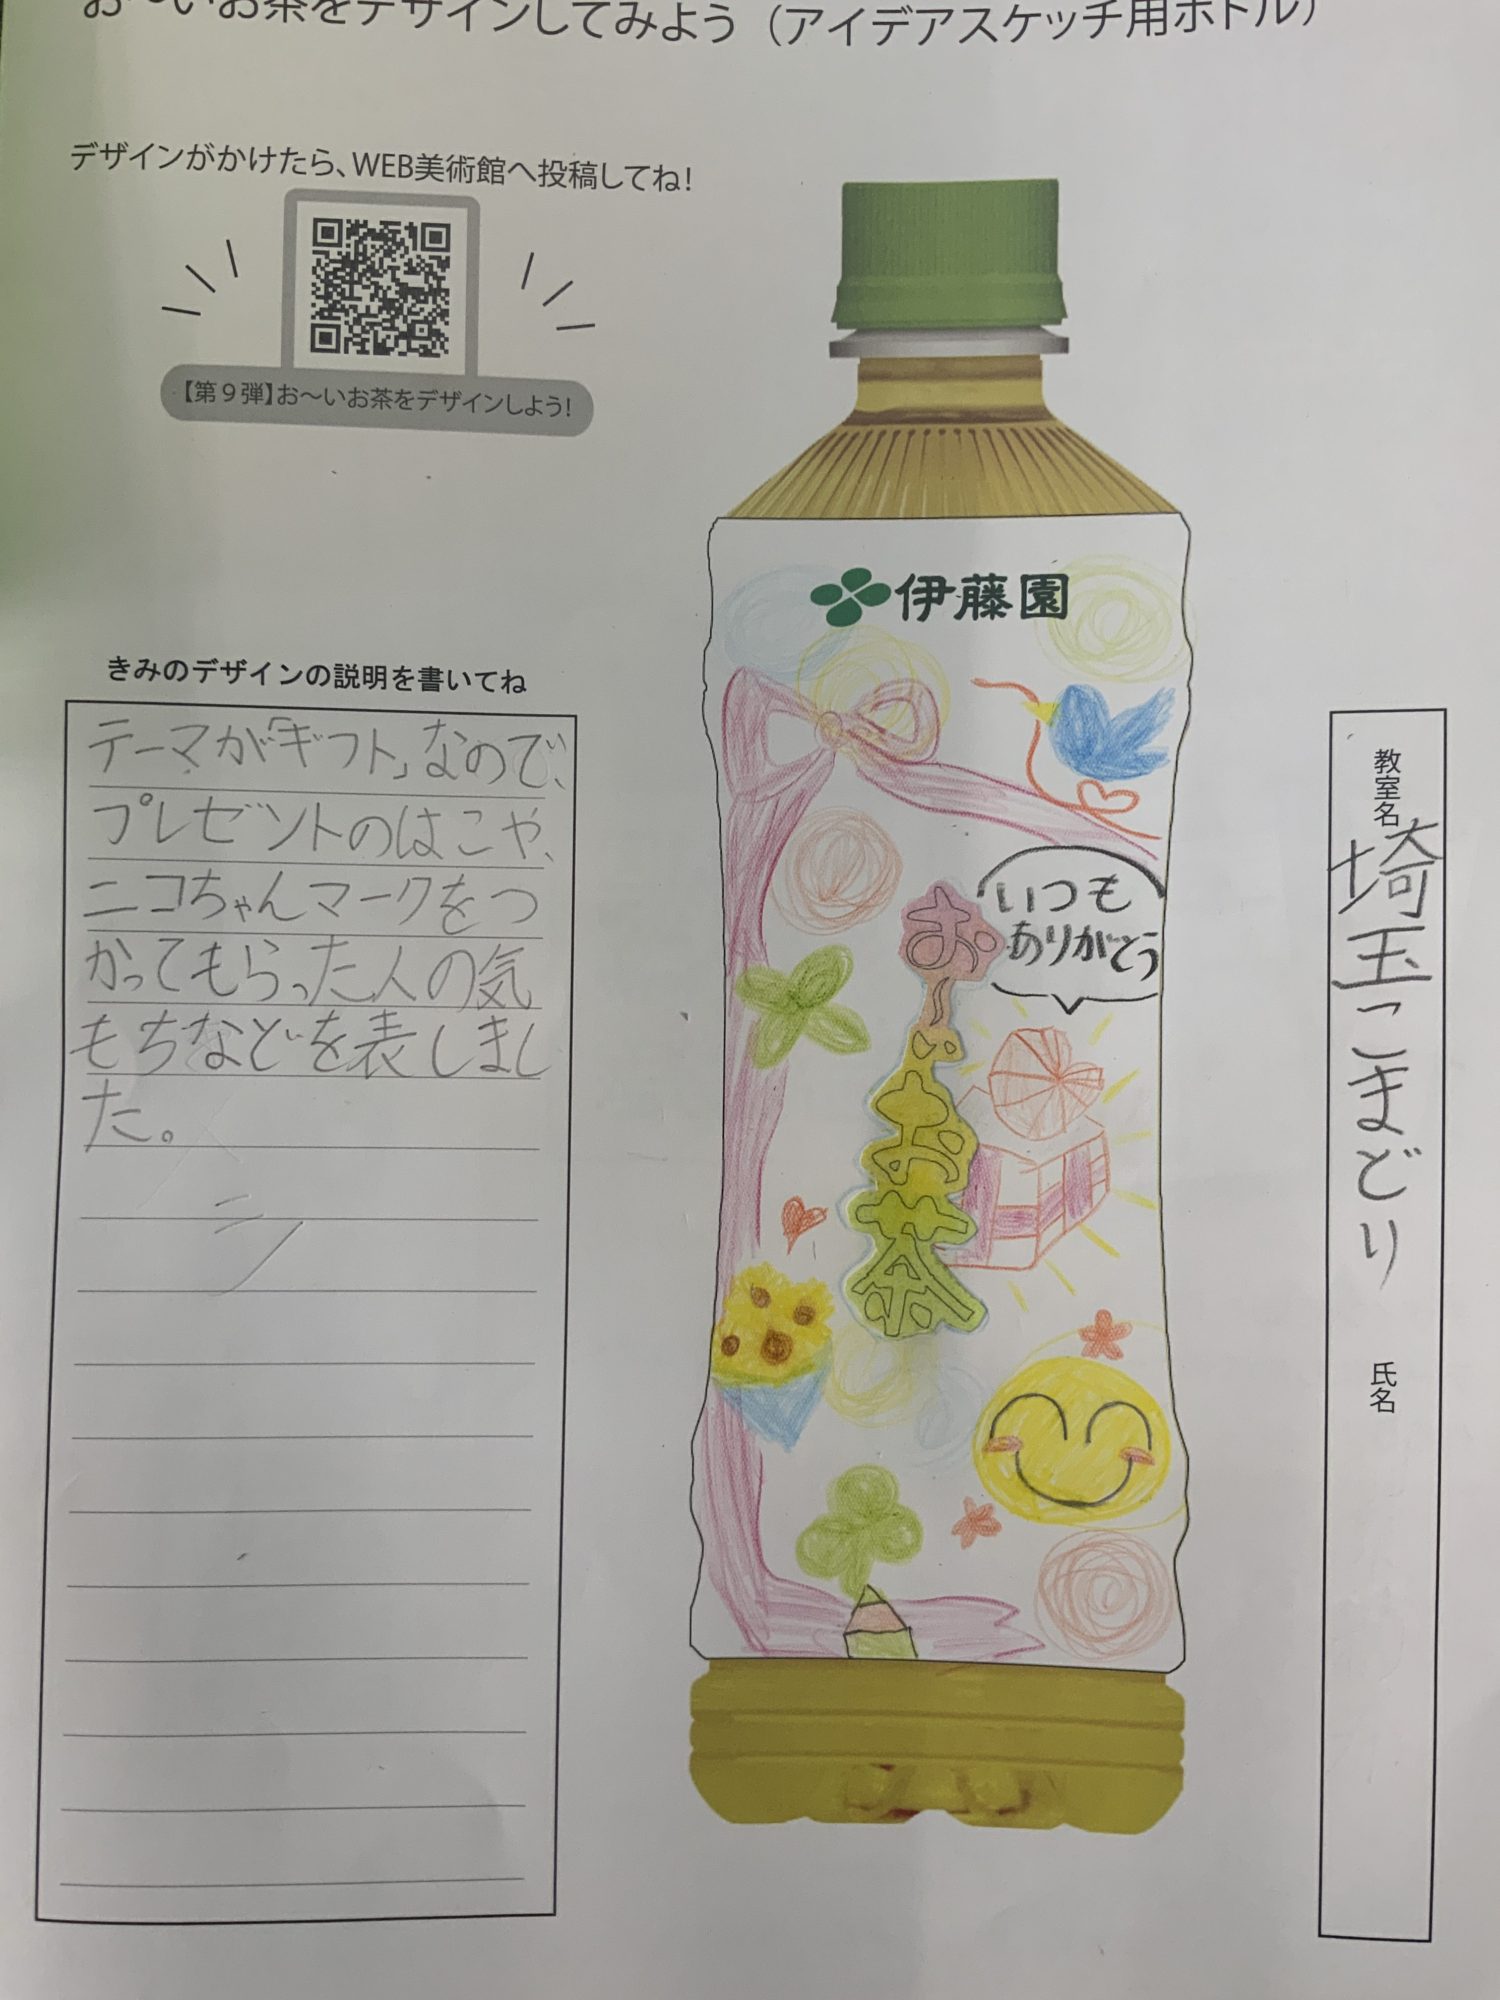 お〜いお茶をデザインしてみよう（アイデアスケッチ用ボトル）
デザインがかけたら、WEB美術館へ投稿してね！
【第９弾】お〜いお茶をデザインしよう！
きみのデザインの説明を書いてね
テーマが「ギフト」なので、
プレゼントのはこや、
ニコちゃんマークをつ
かってもらった人の気
もちなどを表しまし
た。
伊藤園
いつも
ありがとう
お〜いお茶
教室名
埼玉こまどり
氏名